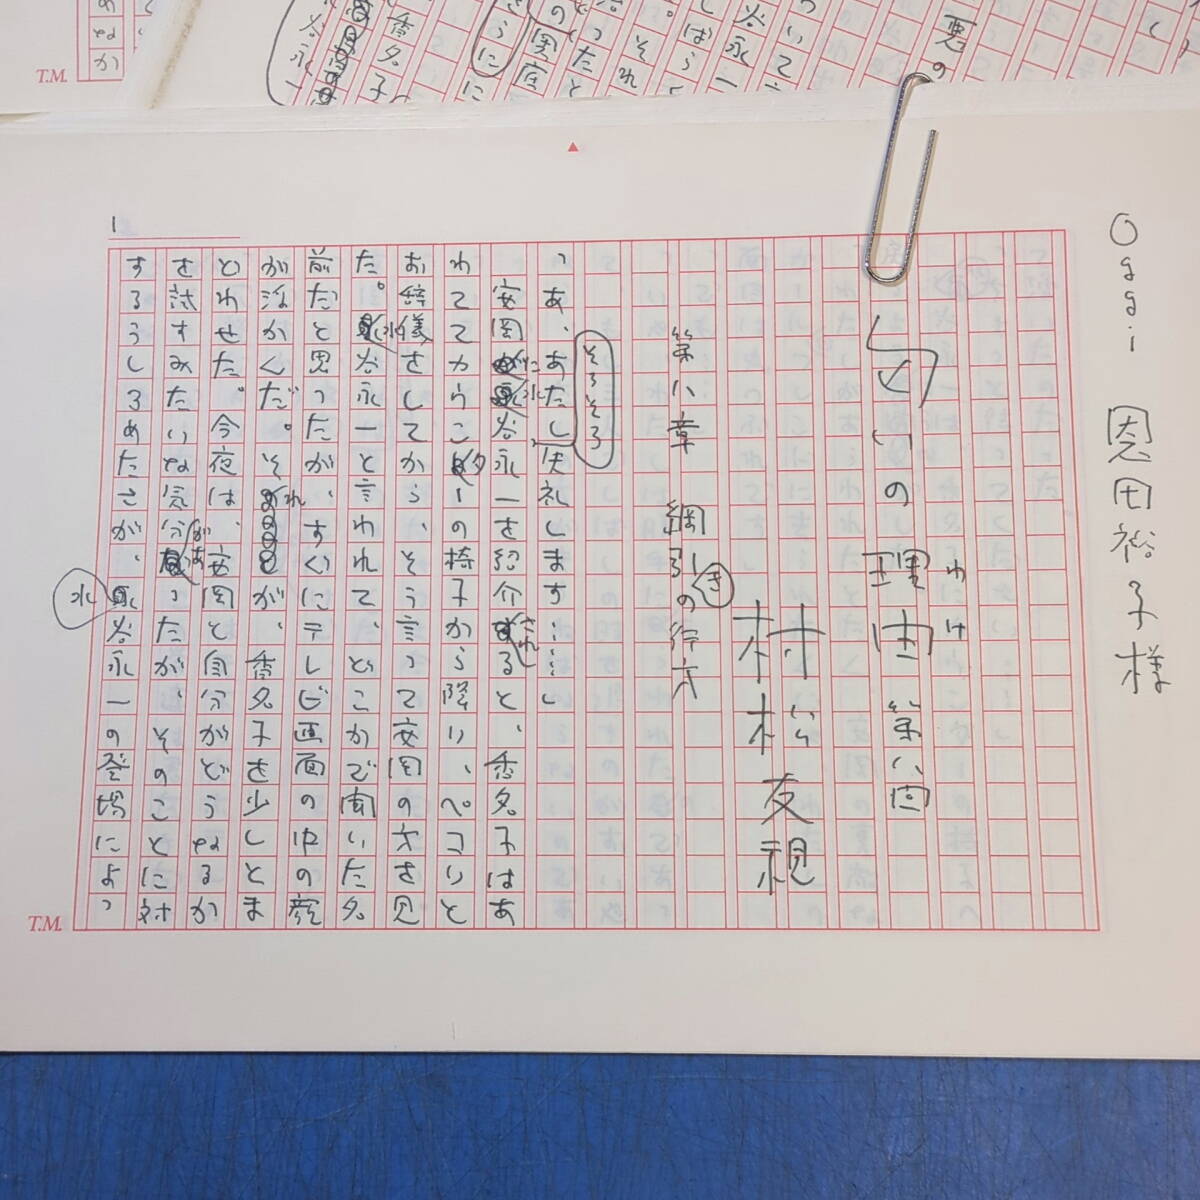 Oggi 恩田裕子様
匂いの理由 第八回
わけ
村松友視
第八章 綱引きの行方
そろそろ
「あ、あたし、失礼します……」
安岡に水谷永一を紹介されると、香名子はあ
わててカウンターの椅子から降り、ペコリと
お辞儀をしてから、そう言って安岡の方を見
た。水谷永一と言われて、どこかで聞いた名
前だと思ったが、すぐにテレビ画面の中の顔
が浮かんだ。それが、香名子を少しとま
どわせた。今夜は、安岡と自分がどうなるか
を試すみたいな気分があった。そのことに対
するうしろめたさが、水谷永一の登場によっ
1
T.M.
T.M.
水